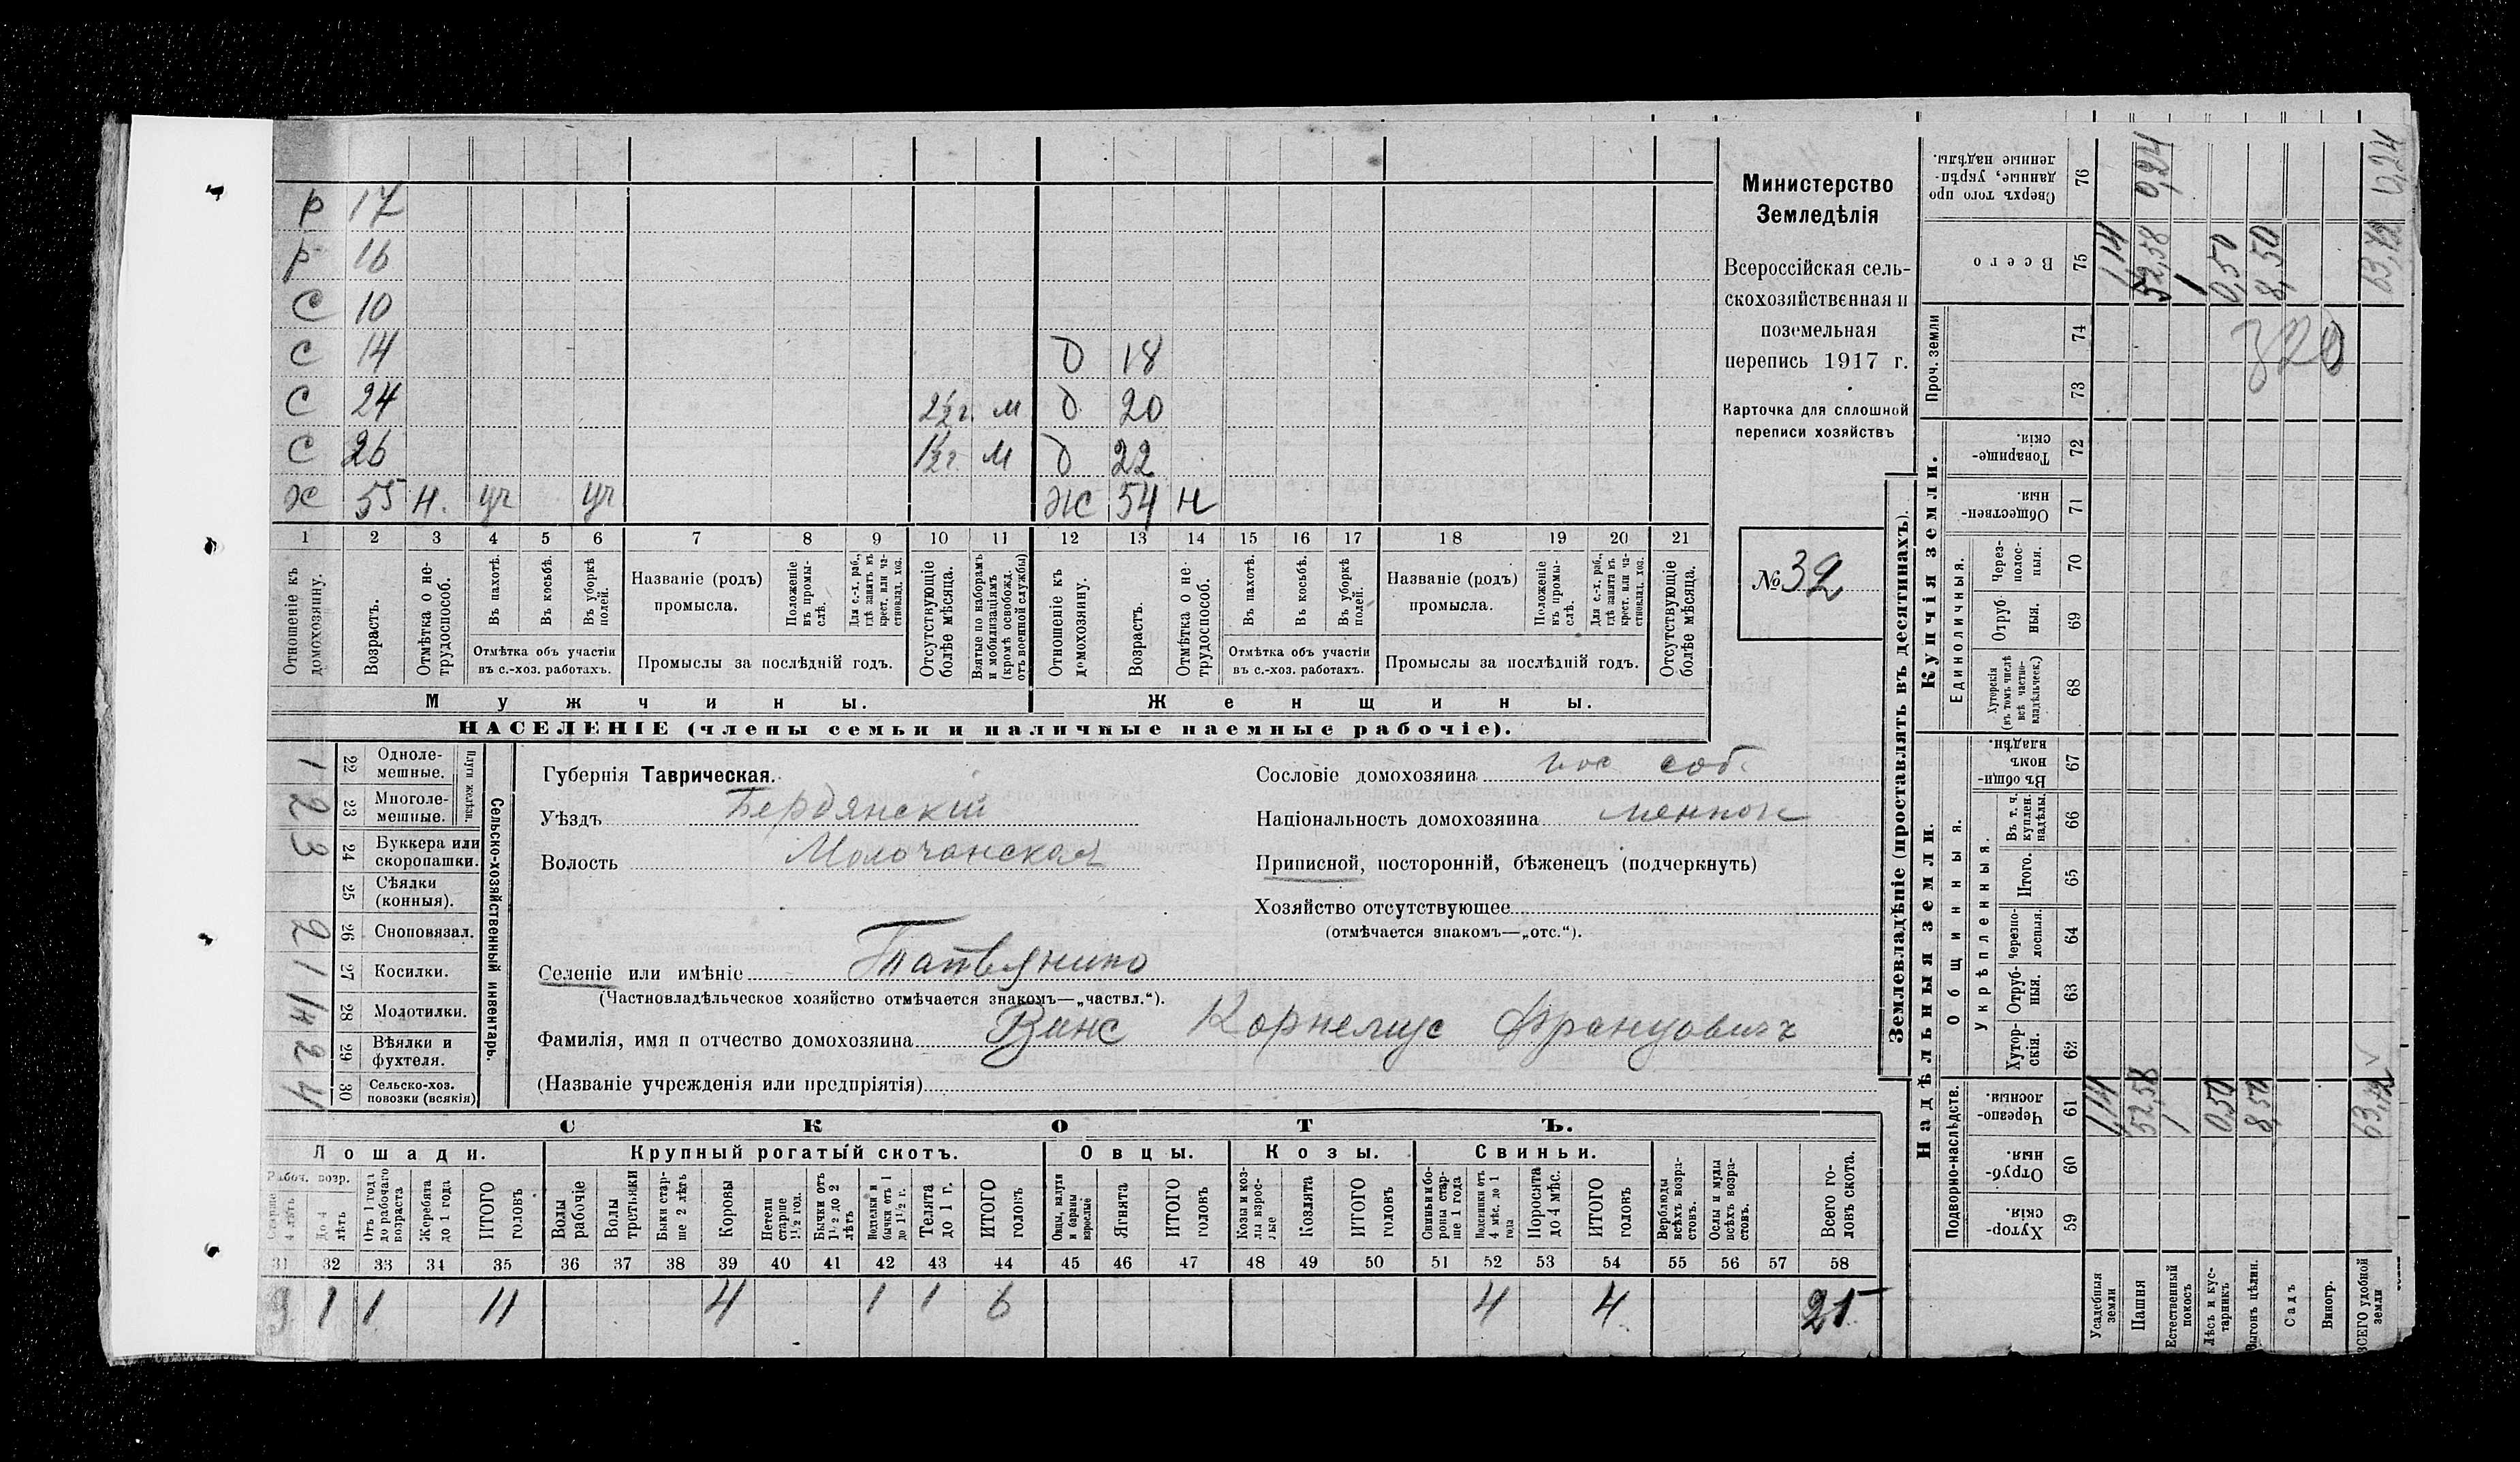 р 17
р 16
С 10
С 14 д 18
С 24 2½ г. м д 20
С 26 1½ г м д 22
ж 55 н. уч уч ж 54 н
1 2 3 4 5 6 7 8 9 10 11 12 13 14 15 16 17 18 19 20 21
Отношеніе къ домохозяину.
Возрастъ.
Отмѣтка о не-трудоспособ.
Въ пахотѣ.
Въ косьбѣ.
Въ уборкѣ полей.
Отмѣтка объ участіи въ с.-хоз. работахъ.
Названіе (родъ) промысла.
Положеніе въ промы-слѣ.
Для с.-х. раб., гдѣ занятъ въ крест. или ча-стновлад. хоз.
Промыслы за послѣдній годъ.
Отсутствующіе болѣе мѣсяца.
Взятые по наборамъ и мобилизаціямъ (кромѣ освобожд. отъ военной службы)
Отношеніе къ домохозяину.
Возрастъ.
Отмѣтка о не-трудоспособ.
Въ пахотѣ.
Въ косьбѣ.
Въ уборкѣ полей.
Отмѣтка объ участіи въ с.-хоз. работахъ.
Названіе (родъ) промысла.
Положеніе въ промы-слѣ.
Для с.-х. раб., гдѣ занята въ крест. или ча-стновлад. хоз.
Промыслы за послѣдній годъ.
Отсутствующіе болѣе мѣсяца.
Мужчины. Женщины.
НАСЕЛЕНІЕ (члены семьи и наличные наемные рабочіе).
Министерство
Земледѣлія
Всероссійская сель-
скохозяйственная и
поземельная
перепись 1917 г.
Карточка для сплошной
переписи хозяйствъ
№ 32
Сельско-хозяйственный инвентарь.
Плуги желѣзн.
1 22 Одноле-мешные.
2 23 Многоле-мешные.
3 24 Буккера или скоропашки.
25 Сѣялки (конныя).
2 26 Сноповязал.
1 27 Косилки.
28 Молотилки.
2 29 Вѣялки и фухтеля.
4 30 Сельско-хоз. повозки (всякія)
Губернія Таврическая.
Уѣздъ Бердянскій
Волость Молочанская
Селеніе или имѣніе
(Частновладѣльческое хозяйство отмѣчается знакомъ—„частвл.“).
Фамилія, имя и отчество домохозяина Винс Корнелиус Францовичъ
(Названіе учрежденія или предпріятія)
Сословіе домохозяина пос соб.
Національность домохозяина меннон
Приписной, посторонній, бѣженецъ (подчеркнуть)
Хозяйство отсутствующее
(отмѣчается знакомъ—„отс.“).
СКОТЪ.
Лошади. Крупный рогатый скотъ. Овцы. Козы. Свиньи.
Рабоч. возр.
Старше 4 лѣтъ
До 4 лѣтъ
Отъ 1 года до рабочаго возраста
Жеребята до 1 года
ИТОГО головъ
Волы рабочіе
Волы третьяки
Быки стар-ше 2 лѣтъ
Коровы
Нетели старше 1½ год.
Бычки отъ 1½ до 2 лѣтъ
Подтелки и бычки отъ 1 до 1½ г.
Телята до 1 г.
ИТОГО головъ
Овцы, валухи и бараны взрослые
Ягнята
ИТОГО головъ
Козы и коз-лы взрос-лые
Козлята
ИТОГО головъ
Свиньи и бо-ровы стар-ше 1 года
Подсвинки отъ 4 мѣс. до 1 года
Поросята до 4 мѣс.
ИТОГО головъ
Верблюды всѣхъ возра-стовъ.
Ослы и мулы всѣхъ возра-стовъ.
Всего го-ловъ скота.
31 32 33 34 35 36 37 38 39 40 41 42 43 44 45 46 47 48 49 50 51 52 53 54 55 56 57 58
9 1 1 11 4 1 1 6 4 4 21
Землевладѣніе (проставлять въ десятинахъ).
Надѣльныя земли. Купчія земли.
Подворно-наслѣдств.
Общинныя.
Укрѣпленныя.
Единоличныя.
Проч. земли
Хутор-скія. 59
Отруб-ныя. 60
Черезпо-лосныя. 61
Хутор-скія. 62
Отруб-ныя. 63
Черезпо-лосныя. 64
Итого. 65
Въ т. ч. куплен. надѣлы. 66
Въ общин-номъ владѣн. 67
Хуторскія (въ томъ числѣ всѣ частно-владѣльческ.) 68
Отруб-ныя. 69
Через-полос-ныя. 70
Обществен-ныя. 71
Товарище-скія. 72
73
74
Всего 75
Сверхъ того про-данные, укрѣп-ленные надѣлы. 76
Усадебныя земли 1,14 1,14
Пашня 52,58 52,58 0,24
Естественный покосъ 1 1
Лѣсъ и кус-тарникъ 0,50 0,50
Выгонъ цѣлин. 8,50 8,50
Садъ
Виногр.
ВСЕГО удобной земли 63,72 63,72 0,24
320